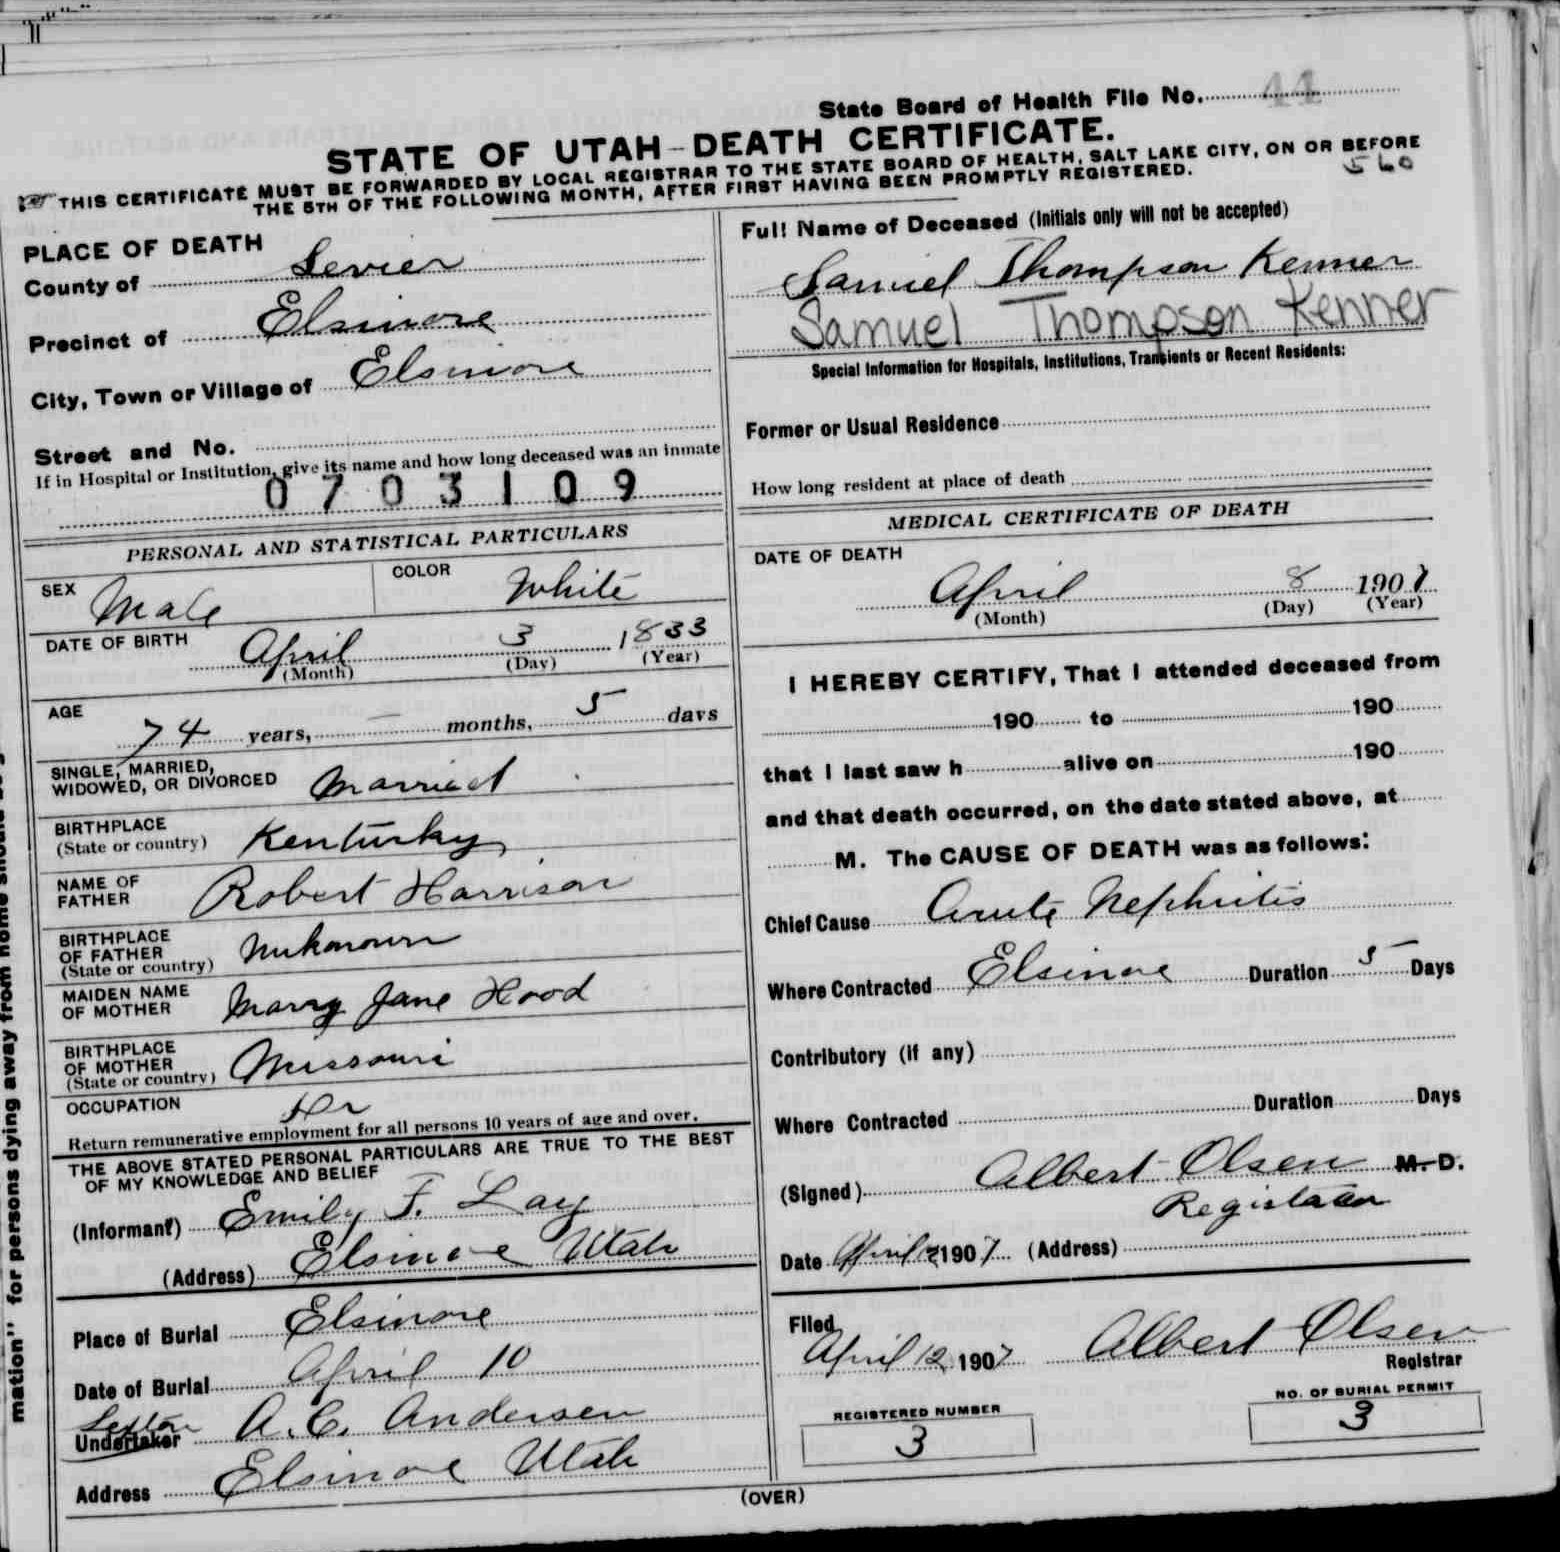 State Board of Health File No. 44
STATE OF UTAH-DEATH CERTIFICATE.
560
THIS CERTIFICATE MUST BE FORWARDED BY LOCAL REGISTRAR TO THE STATE BOARD OF HEALTH, SALT LAKE CITY, ON OR BEFORE
THE 5TH OF THE FOLLOWING MONTH, AFTER FIRST HAVING BEEN PROMPTLY REGISTERED.
PLACE OF DEATH
County of Sevier
Precinct of Elsinore
City, Town or Village of Elsinore
Street and No.
If in Hospital or Institution, give its name and how long deceased was an inmate
0703109
PERSONAL AND STATISTICAL PARTICULARS
SEX Male COLOR White
DATE OF BIRTH April 3 1833
(Month) (Day) (Year)
AGE 74 years, — months, 5 days
SINGLE, MARRIED,
WIDOWED, OR DIVORCED Married
BIRTHPLACE
(State or country) Kenturky
NAME OF
FATHER Robert Harrison
BIRTHPLACE
OF FATHER
(State or country) Unknown
MAIDEN NAME
OF MOTHER Marry Jane Hood
BIRTHPLACE
OF MOTHER
(State or country) Missouri
OCCUPATION
Return remunerative employment for all persons 10 years of age and over.
THE ABOVE STATED PERSONAL PARTICULARS ARE TRUE TO THE BEST
OF MY KNOWLEDGE AND BELIEF
(Informant) Emily F. Lay
(Address) Elsinore Utah
Place of Burial Elsinore
Date of Burial April 10
Sexton
Undertaker A. C. Andersen
Address Elsinore Utah
Full Name of Deceased (Initials only will not be accepted)
Samuel Thompson Kenner
Samuel Thompson Kenner
Special Information for Hospitals, Institutions, Transients or Recent Residents:
Former or Usual Residence
How long resident at place of death
MEDICAL CERTIFICATE OF DEATH
DATE OF DEATH
April 8 1907
(Month) (Day) (Year)
I HEREBY CERTIFY, That I attended deceased from
190 to 190
that I last saw h alive on 190
and that death occurred, on the date stated above, at
M. The CAUSE OF DEATH was as follows:
Chief Cause Acute Nephritis
Where Contracted Elsinore Duration 5 Days
Contributory (If any)
Where Contracted Duration Days
(Signed) Albert Olsen M. D.
Registrar
Date April 12 1907 (Address)
Filed
April 12 1907 Albert Olsen
Registrar
REGISTERED NUMBER
3
NO. OF BURIAL PERMIT
3
(OVER)
mation" for persons dying away from home should